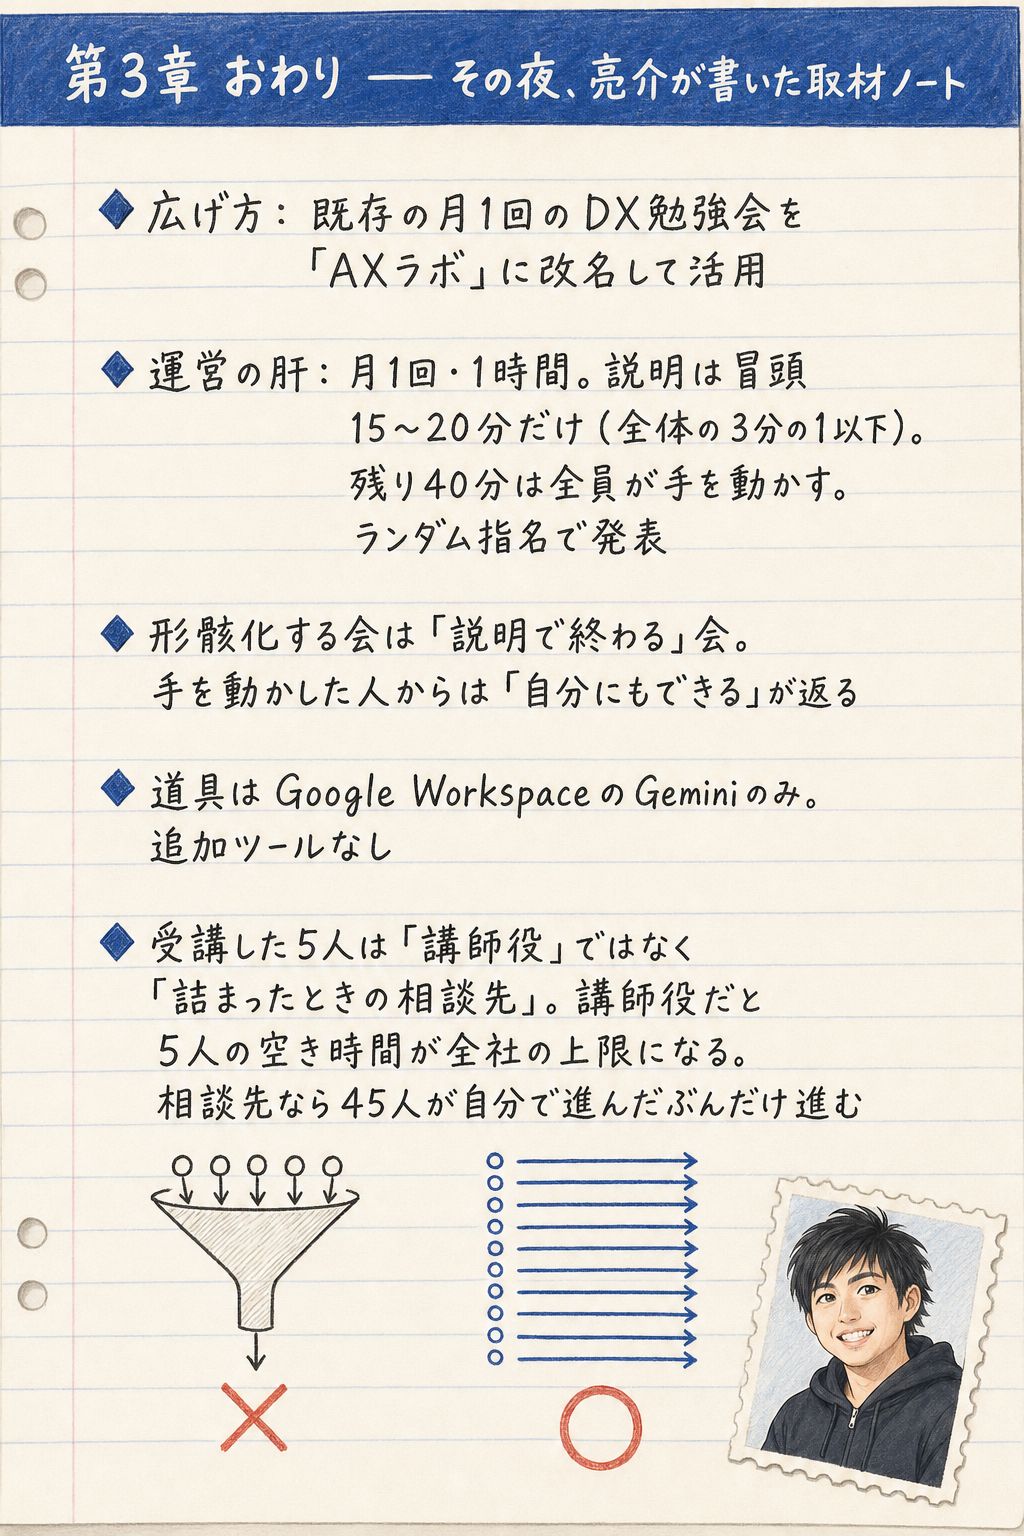 第3章 おわり ― その夜、亮介が書いた取材ノート
広げ方： 既存の月1回のDX勉強会を
「AXラボ」に改名して活用
運営の肝： 月1回・1時間。説明は冒頭
15～20分だけ（全体の3分の1以下）。
残り40分は全員が手を動かす。
ランダム指名で発表
形骸化する会は「説明で終わる」会。
手を動かした人からは「自分にもできる」が返る
道具は Google WorkspaceのGeminiのみ。
追加ツールなし
受講した5人は「講師役」ではなく
「詰まったときの相談先」。講師役だと
5人の空き時間が全社の上限になる。
相談先なら45人が自分で進んだぶんだけ進む